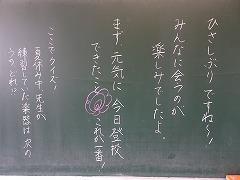 ひさしぶりですね〜!
みんなに会うのが
楽しみでしたよ。
まず、元気に今日登校
できたこと、これが一番!
ここでクイズ!
夏休み中、先生が
練習していた楽器は、次の
うちどれ?